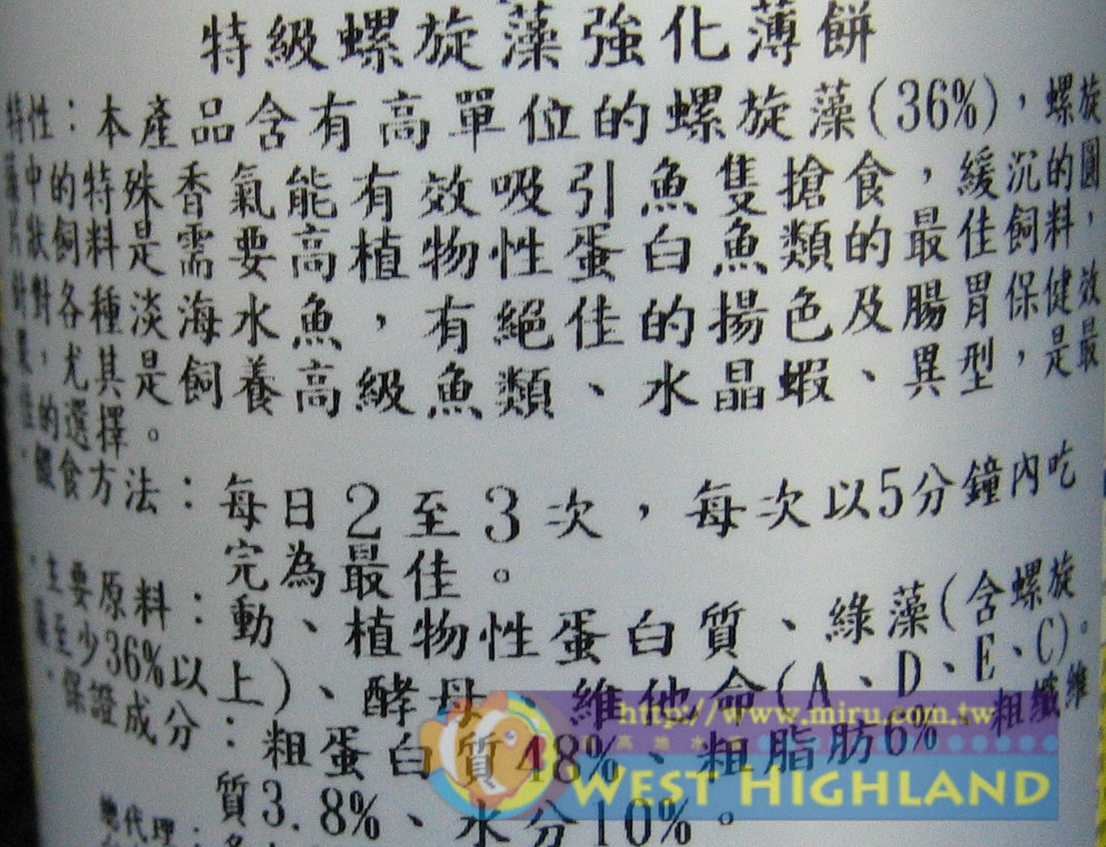 特級螺旋藻強化薄餅
特性：本產品含有高單位的螺旋藻(36%)，螺旋
藻中的特殊香氣能有效吸引魚隻搶食，緩沉的圓
片狀飼料是需要高植物性蛋白魚類的最佳飼料，
針對各種淡海水魚，有絕佳的揚色及腸胃保健效
果，尤其是飼養高級魚類、水晶蝦、異型，是最
佳的選擇。
·餵食方法：每日2至3次，每次以5分鐘內吃
完為最佳。
·主要原料：動、植物性蛋白質、綠藻(含螺旋
藻至少36%以上)、酵母、維他命(A、D、E、C)。
·保證成分：粗蛋白質48%、粗脂肪6%、粗纖維
質3.8%、水分10%。
總代理：
http://www.miru.com.tw
高地水族
WEST HIGHLAND